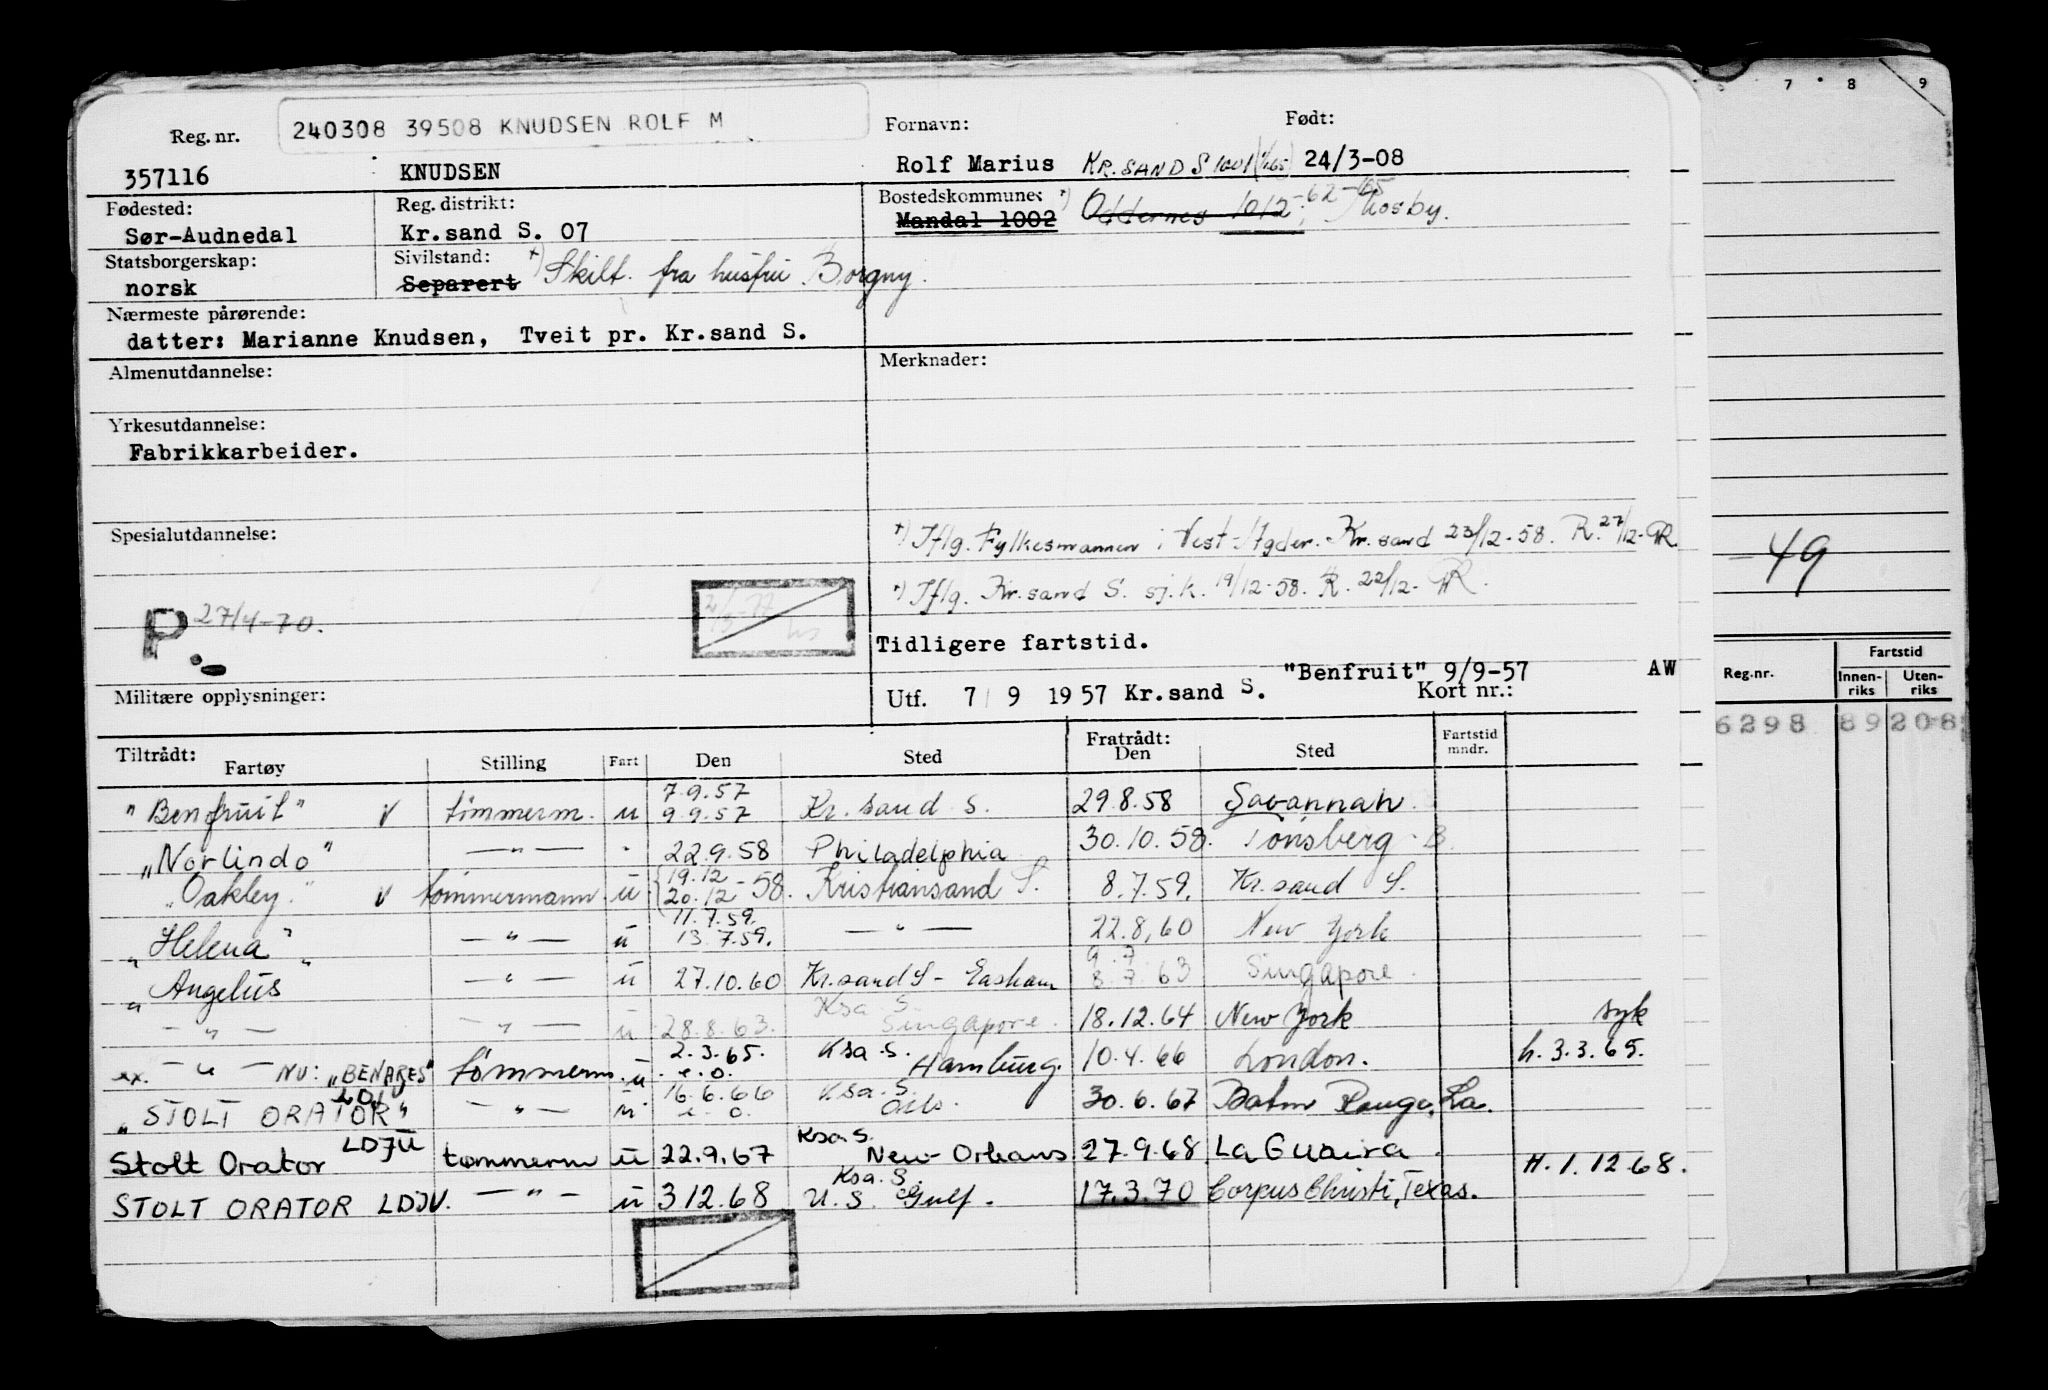 7 8 9
Reg. nr. 240308 39508 KNUDSEN ROLF M Fornavn: Født:
357116 KNUDSEN Rolf Marius KR.SAND S 1001 24/3-08
Fødested: Reg. distrikt: Bostedskommune:
Sør-Audnedal Kr.sand S. 07 Mandal 1002 Oddernes 1012 - 62 - Mosby.
Statsborgerskap: Sivilstand:
norsk Separert +) Skilt fra hustru Borgny.
Nærmeste pårørende:
datter: Marianne Knudsen, Tveit pr. Kr.sand S.
Almenutdannelse: Merknader:
Yrkesutdannelse:
Fabrikkarbeider.
Spesialutdannelse: +) Iflg. Fylkesmannen i Vest-Agder. Kr.sand 23/12-58. R. 27/12-
*) Iflg. Kr.sand S. sj.k. 19/12-58. R. 22/12-
-49
P 27/4-70.
Tidligere fartstid.
"Benfruit" 9/9-57 AW
Militære opplysninger: Utf. 7/9 1957 Kr.sand S. Kort nr.:
Reg.nr. Fartstid
Innen-riks Uten-riks
6298 89 208
Tiltrådt: Fratrådt:
Fartøy Stilling Fart Den Sted Den Sted Fartstid mndr.
"Benfruit" v tømmerm. u 7.9.57 9.9.57 Kr.sand S. 29.8.58 Savannah
"Norlindo" — " — " 22.9.58 Philadelphia 30.10.58. Tønsberg - B.
"Oakley" v tømmermann u 19.12 20.12 - 58. Kristiansand S. 8.7.59. Kr.sand S.
"Helena" — " — u 11.7.59. 13.7.59. — " — 22.8.60 New York
"Angelus" — " — u 27.10.60 Kr.sand S - Eastham 9.7 8.7.63 Singapore.
— " — — " — u 28.8.63. Ksa. S. Singapore. 18.12.64 New York syk
ex. — " — NU: "BENARES" tømmerm. u 2.3.65. e.o. Ksa. S. Hamburg. 10.4.66 London. h. 3.3.65.
"STOLT ORATOR" — " — u 16.6.66 e.o. Ksa. S. Oslo. 30.6.67 Baton Rouge, La.
Stolt Orator LDJU tømmerm u 22.9.67 Ksa. S. New-Orleans 27.9.68 La Guaira
H. 1.12 68.
STOLT ORATOR LDJU. — " — u 3 12.68 Ksa. S. U.S. Gulf. 17.3.70 Corpus Christi, Texas.